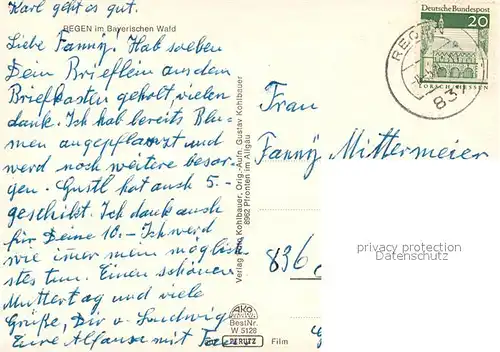 Karl geht es gut.
REGEN im Bayerischen Wald
Liebe Fanny! Hab soeben
Dein Brieflein aus dem
Briefkasten geholt, vielen
dank. Ich hab bereits Blu-
men angepflanzt und
werd noch weitere besor-
gen. Gustl hat auch 5.-
geschikt. Ich dank auch
für Deine 10.- Ich werd
wie imer mein möglich-
stes tun. Einen schönen
Muttertag und viele
Grüße, Dir u. Ludwig
Eure Alfause mit
Verlag Kohlbauer, Orig.-Aufn. Gustav Kohlbauer
8962 Pfronten im Allgäu
Deutsche Bundespost
20
LORSCH/HESSEN
REGEN
83
Frau
Fanny Mittermeier
836
privacy protection
Datenschutz
ako
BestNr.
W 5128
PERUTZ Film